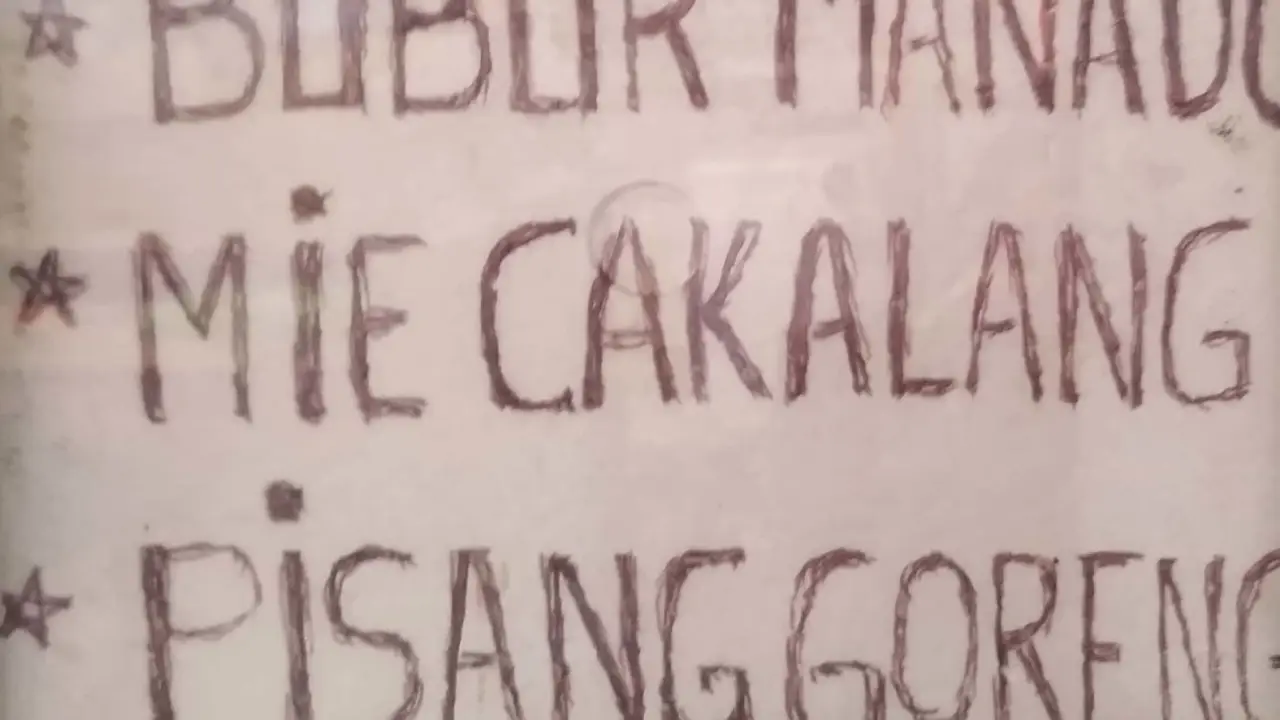 ★ BUBUR MANADO
★ MiE CAKALANG
★ PiSANG GORENG